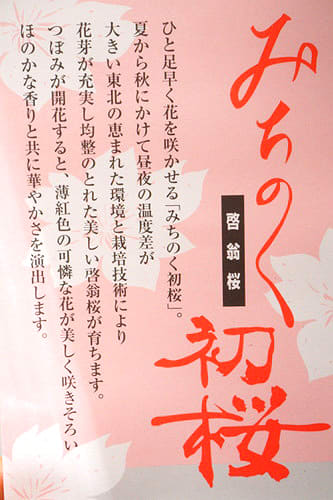 みちのく
初桜
啓翁桜
ひと足早く花を咲かせる「みちのく初桜」。
夏から秋にかけて昼夜の温度差が
大きい東北の恵まれた環境と栽培技術により
花芽が充実し均整のとれた美しい啓翁桜が育ちます。
つぼみが開花すると、薄紅色の可憐な花が美しく咲きそろい
ほのかな香りと共に華やかさを演出します。